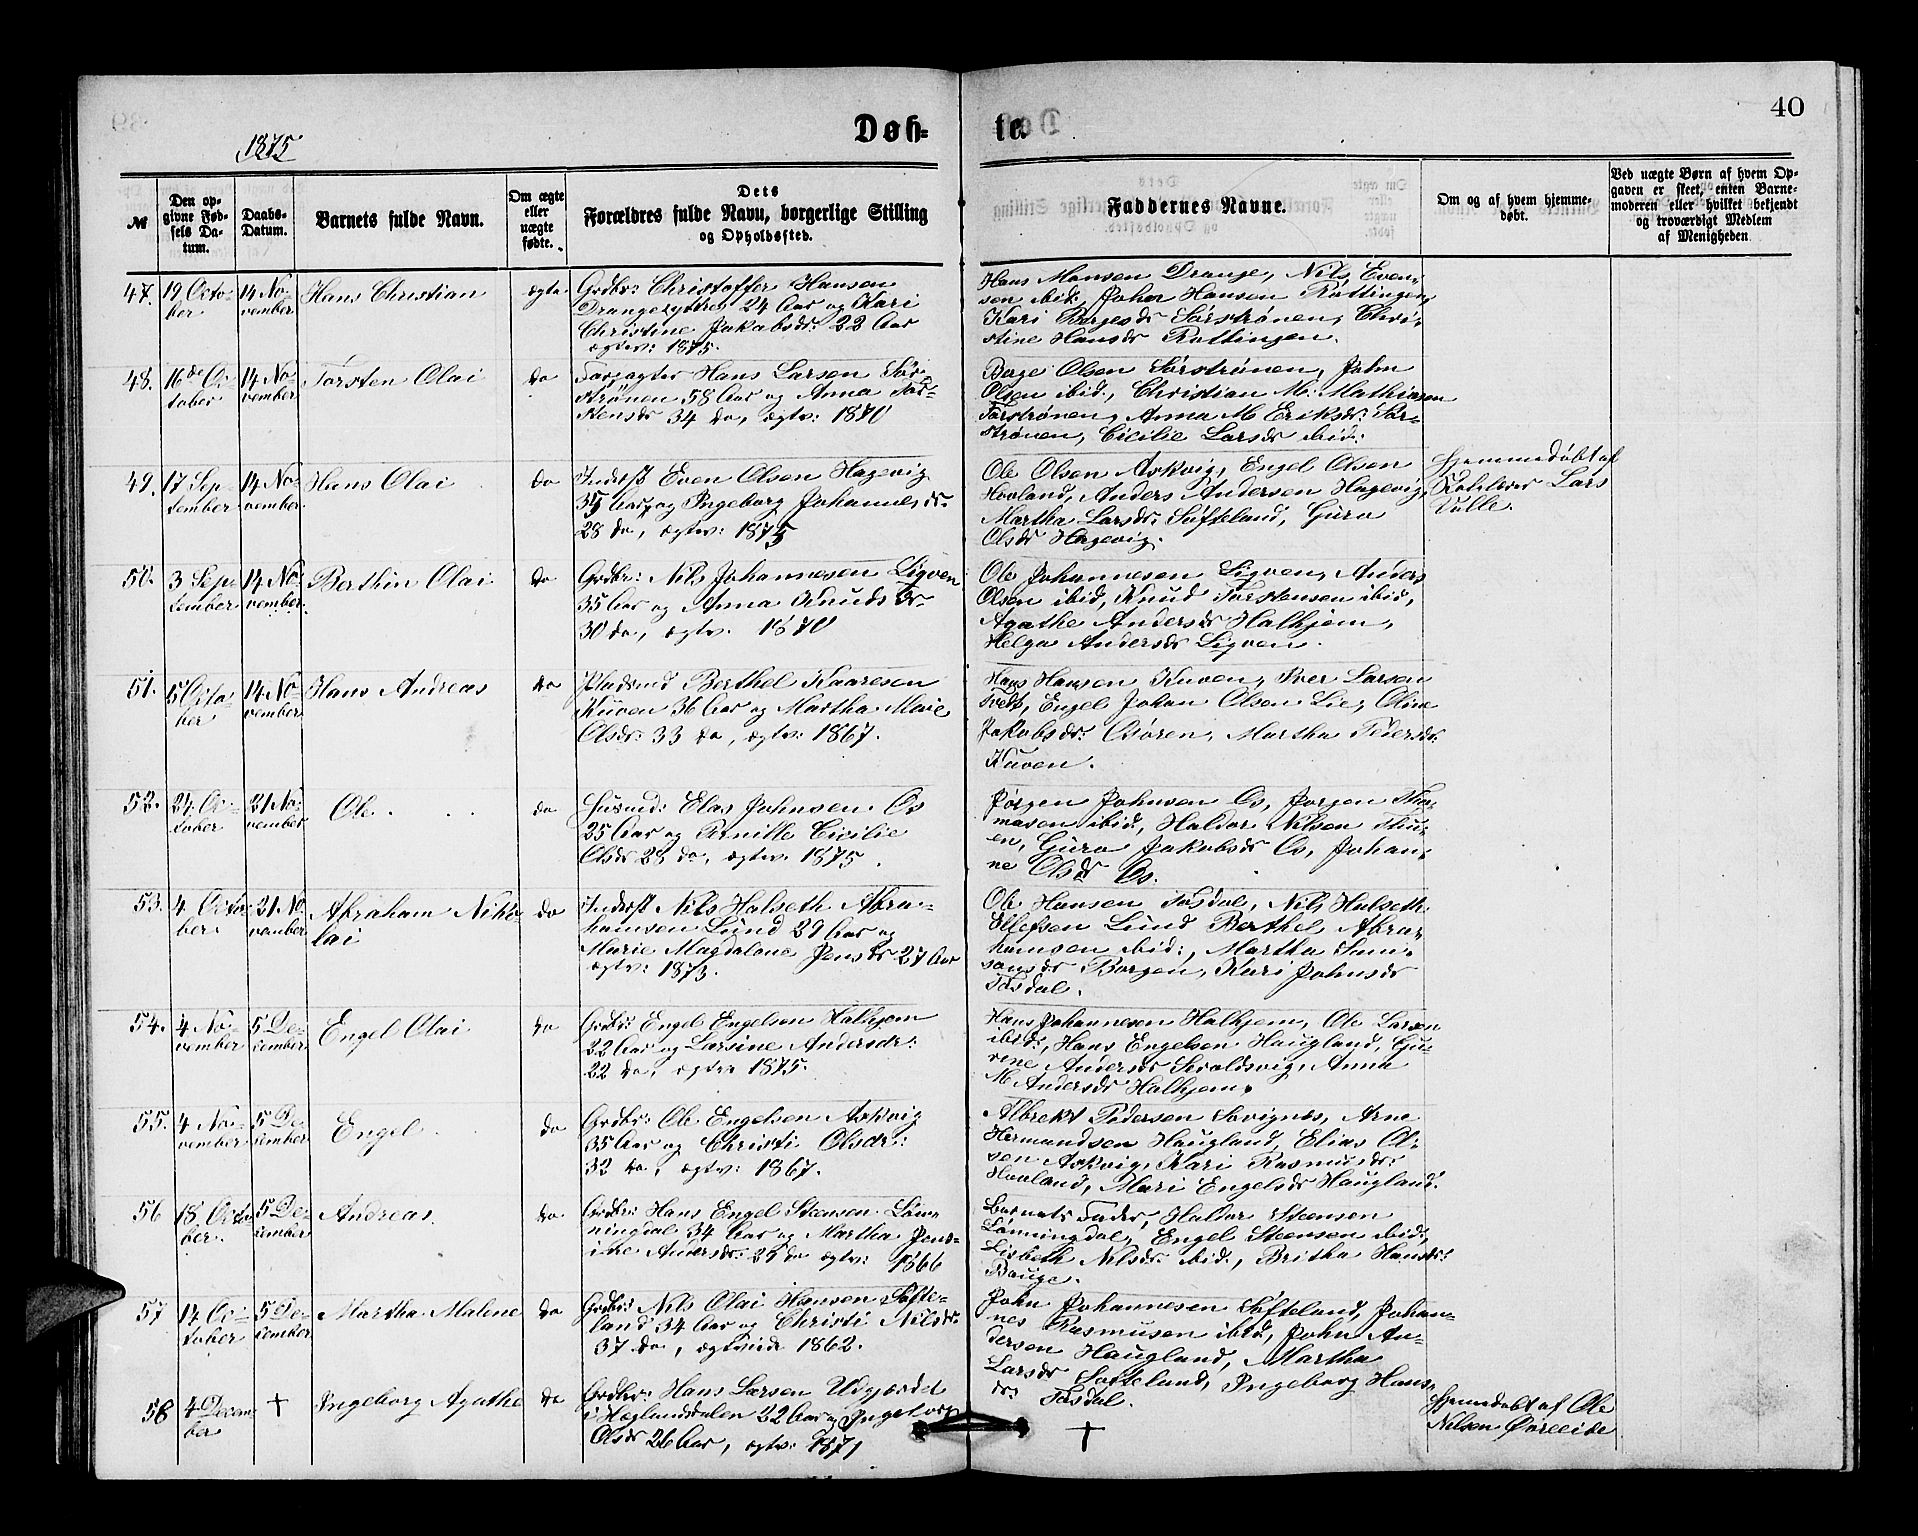 40
Døb-
te.
1875
№
Den op-
givne Fød-
sels Da-
tum.
Daabs-
Datum.
Barnets fulde Navn.
Om ægte
eller
uægte
fødte.
Dets
Forældres fulde Navn, borgerlige Stilling
og Opholdssted.
Faddernes Navne.
Om og af hvem hjemme-
døbt.
Ved uægte Børn af hvem Op-
gaven er skeet, enten Barne-
moderen eller hvilket bekjendt
og troværdigt Medlem
af Menigheden.
47. 19 Octo-
ber
14 No-
vember
Hans Christian
ægte
Grdbr: Christoffer Hansen
Drange 24 Aar og Kari
Christine Jakobsdr: 22 Aar
ægtev: 1875.
Hans Monsen Drange, Nils Even-
sen ibid:, Johan Hansen Røttingen,
Kari Børgesdr Sørstrønen, Chri-
stine Hansdr Røttingen.
48. 16de Oc-
tober
14 No-
vember
Torsten Olai
do
Forpagter Hans Larsen Sør-
strønen 58 Aar og Anna Tor-
stensdr 34 do, ægtv: 1870
Børge Olsen Sørstrønen, John
Olsen ibid., Christian M: Mathiasen
Sørstrønen, Anna M Eriksdr: Sør-
strønen, Cicilie Larsdr ibid:
49. 17 Sep-
tember
14 No-
vember
Hans Olai
do
Inderst Even Olsen Hagevig
35 Aar og Ingeborg Johannesdr.
28 do, ægtev: 1875
Ole Olsen Askvig, Engel Olsen
Hovland, Anders Andersen Hagevig,
Martha Larsdr: Søfteland, Guro
Olsdr Hagevig.
Hjemmedøbt af
Lars
Tulle.
50. 3 Sep-
tember
14 No-
vember
Berthin Olai
do
Grdbr: Nils Johannesen Ligven
35 Aar og Anna Knudsdr.
30 do, ægtv. 1870
Ole Johannesen Ligven, Anders
Olsen ibid, Knud Torstensen ibid,
Agathe Andersdr Halhjem,
Helga Andersdr Ligven.
51. 5 Octo-
ber
14 No-
vember
Hans Andreas
do
Pladsmd Berthel Kaaresen
Kuven 36 Aar og Martha Marie
Olsdr: 33 do, ægtv: 1867.
Hans Hansen Kuven, Iver Larsen
Tveit, Engel Johan Olsen Lie, Oline
Jakobsdr: Osøren, Martha Pedersdr:
Kuven.
52. 24 Oc-
tober
21 No-
vember
Ole.
do
Husmd: Elas Johnsen Os
25 Aar og Cicilie
Olsdr 28 do, ægtv. 1875.
Jørgen Johnsen Os, Jørgen Tho-
masen ibid:, Haldor Nilsen Thu-
en, Guro Jakobsdr Os, Johan-
ne Olsdr Os.
53. 4 Octo-
ber
21 No-
vember
Abraham Niko-
lai
do
Inderst Nils Holseth Abra-
hamsen Lund 29 Aar og
Marie Magdalene Jensdr 27 Aar
ægtv: 1873.
Ole Hansen Tøsdal, Nils Holseth
Ellefsen Lund Berthel Abra-
hamsen ibid:, Martha Sam-
sonsdr Borgen, Kari Johnsdr
Tøsdal.
54. 4 No-
vember
5 De-
cember
Engel Olai
do
Grdbr: Engel Engelsen Halhjem
22 Aar og Larsine Andersdr:
22 do, ægtev 1875.
Hans Johannesen Halhjem, Ole Larsen
ibid:, Hans Engelsen Haugland, Gu-
rine Andersdr Skoldsvig, Anna
M Andersdr Halhjem.
55. 4 No-
vember
5 De-
cember
Engel
do
Grdbr: Ole Engelsen Askvig
35 Aar og Christi Olsdr:
32 do, ægtv: 1867.
Albrekt Pedersen Søvignes, Arne
Hermundsen Haugland, Elias Ol-
sen Askvig, Kari Rasmusdr:
Hovland, Mari Engelsdr Haugland.
56 18 Octo-
ber.
5 De-
cember
Andreas
do
Grdbr: Hans Engel Steensen Løn-
ningdal 34 Aar og Martha Jens-
ine Andersdr: 25 do ægtv: 1866
Barnets Fader, Haldor Steensen
Lønningdal, Engel Steensen ibid:,
Lisbeth Nilsdr ibid, Britha Hansdr:
Bauge.
57 14 Oc-
tober
5 De-
cember
Martha Malene
do
Grdbr: Nils Olai Hansen Søfte-
land 34 Aar og Christi Nilsdr:
37 do, ægtviede 1862.
John Johannesen Søfteland, Johan-
nes Rasmusen ibid, John An-
dersen Haugland, Martha
Larsdr Søfteland, Ingeborg Hans-
dr: Tøsdal.
58 4 Decem-
ber
†
Ingeborg Agathe
do
Grdbr: Hans Larsen Udgaardet
i Hæglandsdalen 22 Aar og Ingeborg
Olsdr 26 Aar, ægtv: 1871
†
Hjemmedøbt af Ole
Nilsen Øvreeide